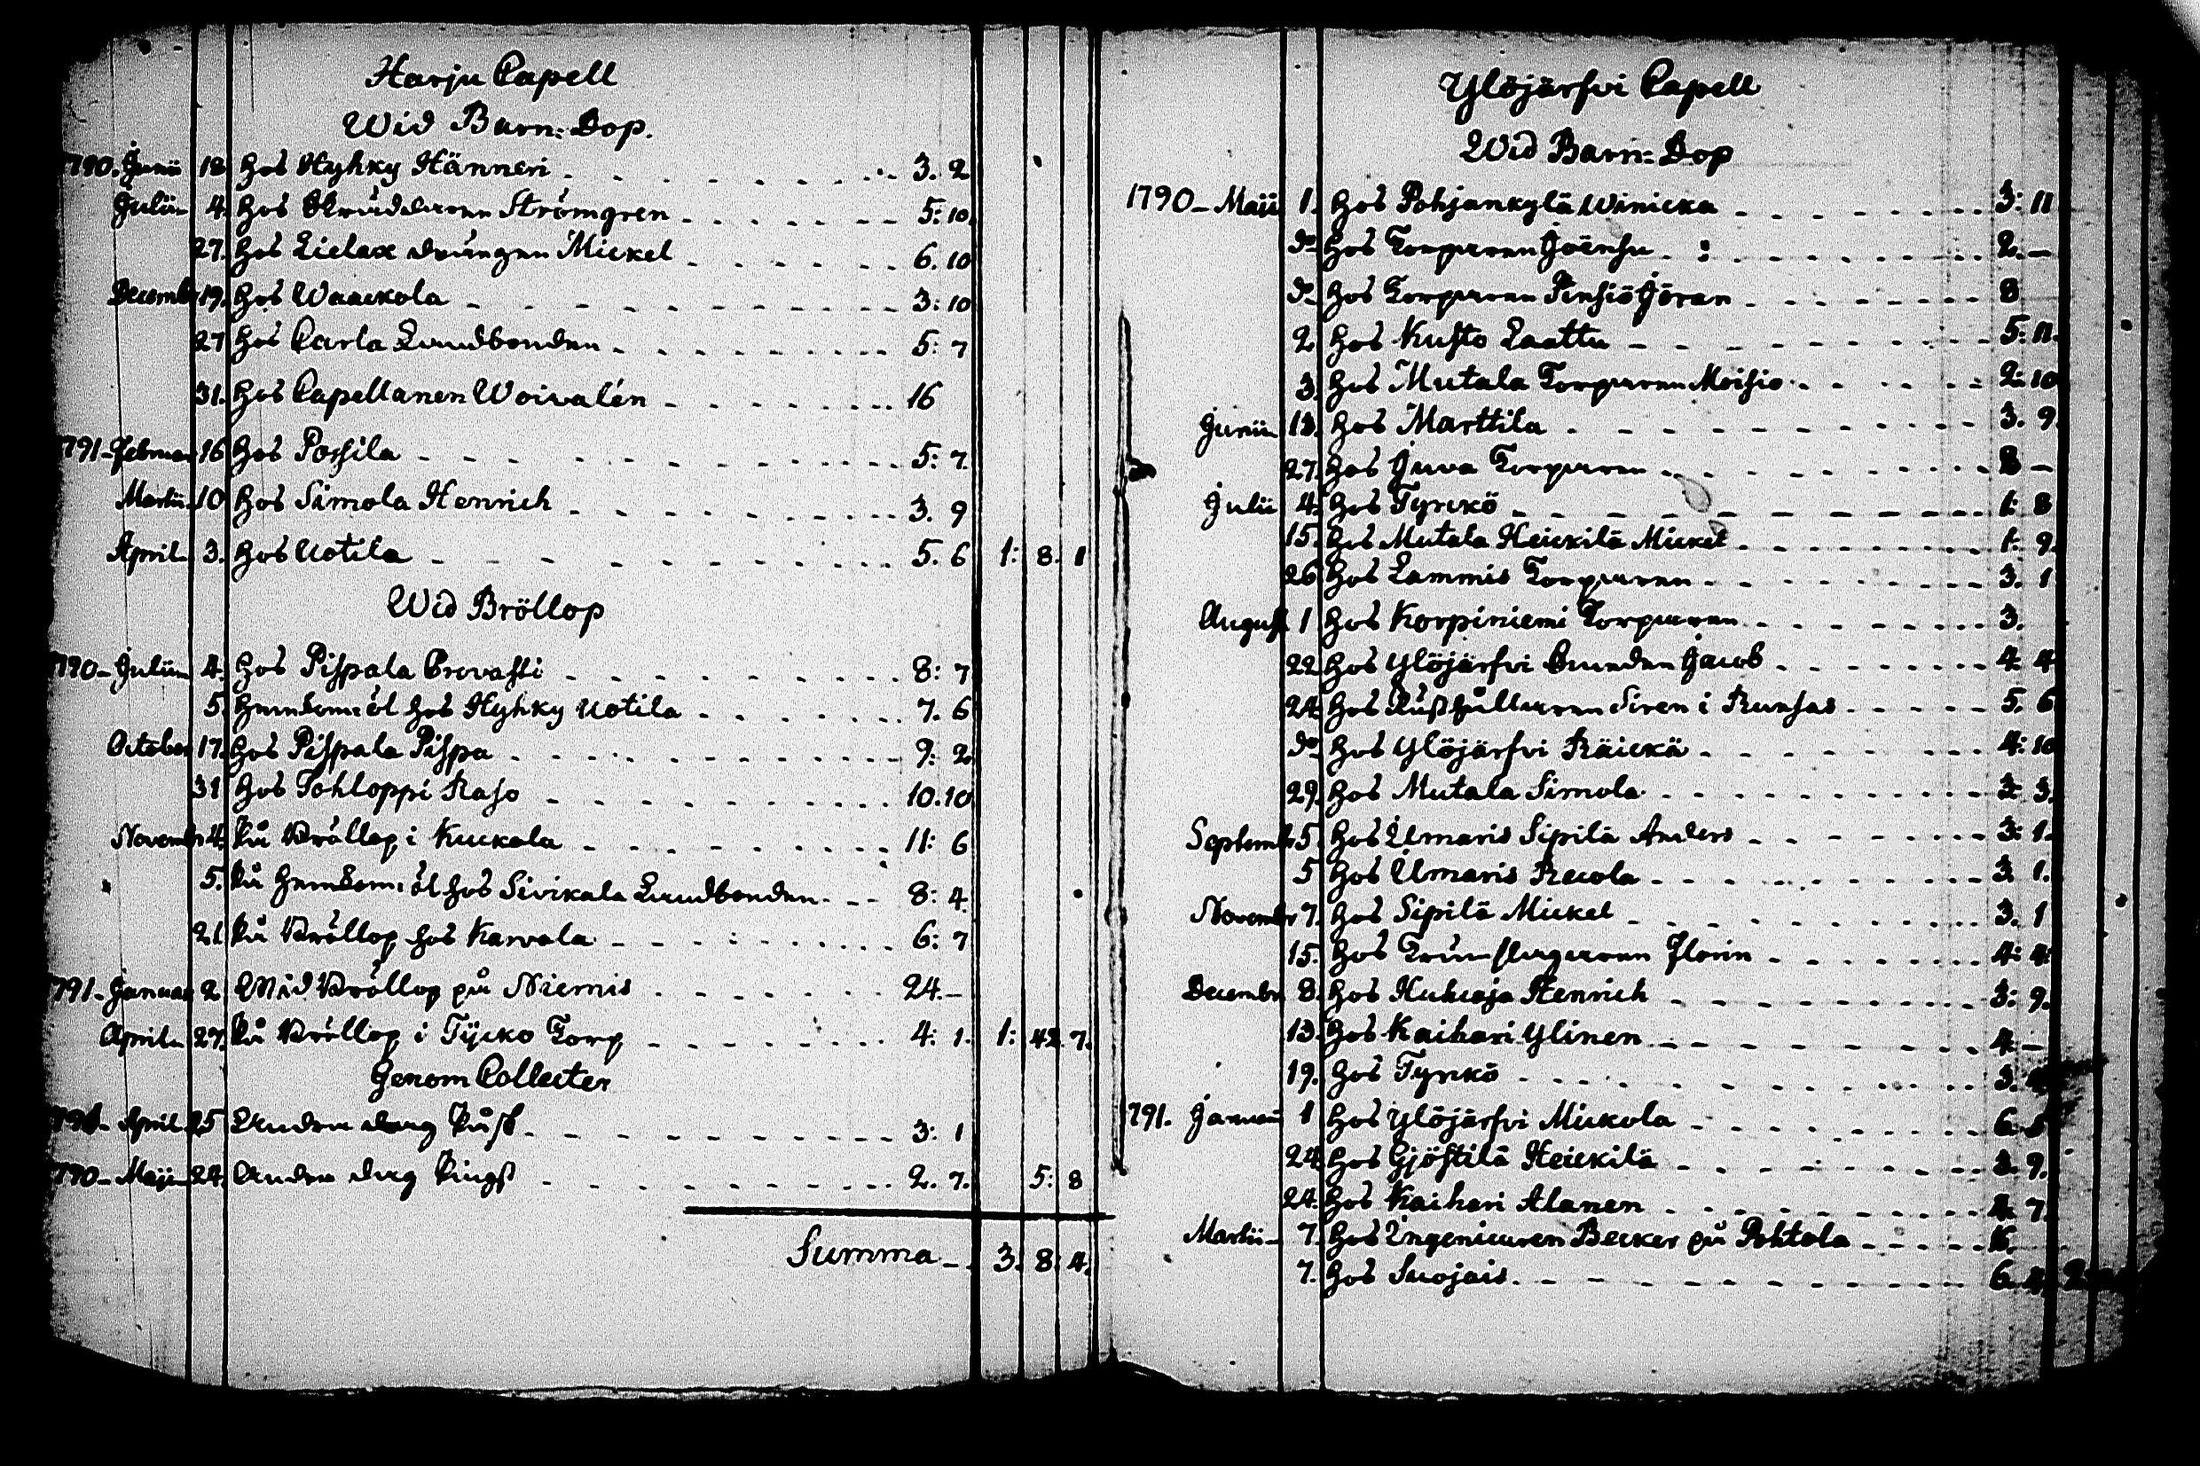 Harju Capell
Wid Barn: Dop.
1790. Junii 18 hos Hyhky Hänneri 3. 2
Julii 4. hos Skräddaren Strömgren 5: 10.
27. hos Lielax drängen Mickel 6. 10
Decemb. 19. hos Waackola 3: 10
27 hos Carla Landbonden 5: 7
31. hos Capellanen Woivalén 16
1791. Februar 16 hos Possila 5: 7
Martii 10 hos Simola Henrich 3. 9
April 3. hos Uotila 5. 6 1: 8. 1
Wid Bröllop
1790 Julii 4. hos Pispala Provasti 8: 7
5. hemkom: öl hos Hyhky Uotila 7. 6
October 17. hos Pispala Pispa 9: 2
31 hos Tohloppi Raso 10. 10
Novembr 4. På Bröllop i Kuckola 11: 6
5. På hemkom: öl hos Sivikala Landbonden 8: 4
21 På Bröllop hos Karvala 6: 7
1791. Januar 2 Wid Bröllop på Niemis 24. –
April 27. På Bröllop i Tycko Torp 4: 1. 1: 42 7.
Genom Collecter
April 25 Andra dag Påsk 3: 1
1790 Maji 24 Andra dag Pingst 2. 7. 5: 8
Summa 3. 8: 4.
Ylöjärfvi Capell
Wid Barn: Dop
1790 Maii 1. hos Pohjankylä Winicka 3: 11
do hos Torparen Joënsu 2. –
do hos Torparen Pinsiö Jöran 8
2 hos Kusto Laattu 5: 11.
3. hos Mutala Torparen Moisio 2: 10
Junii 13. hos Marttila 3. 9
27. hos Juva Torparen 8 –
Julii 4. hos Tyrckö 1: 8
15. hos Mutala Heickilä Mickel 1: 9
26 hos Lammis Torparen 3. 1
August 1 hos Korpiniemi Torparen 3.
22 hos Ylöjärfvi Bonden Jacob 4: 4
24 hos Rusthållaren Siren i Runsas 5. 6
do hos Ylöjärfvi Räickä 4: 10
29. hos Mutala Simola 3. 3.
Septemb. 5. hos Ilmaris Sipilä Anders 3: 1.
5 hos Ilmaris Recola 3. 1.
Novembr 7. hos Sipilä Mickel 3. 1
15. hos Florin 4: 4:
Decembr 8. hos Huhcoja Henrich 3: 9.
13. hos Kaihari Ylinen 4 –
19. hos Tyrckö 3.
1791. Januar 1 hos Ylöjärfvi Mickola 6. 5
24 hos Gjöstilä Heickilä 3. 9.
24. hos Kaihari Alanen 4. 7.
Martii 7. hos Ingenieuren Becker på Pohtola 16.
7. hos Suojais 6. 4.